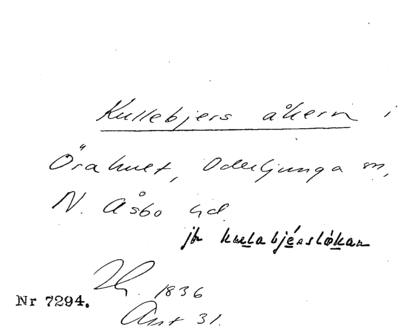 Kullebjers åkern i
Örahult, Oderljunga sn,
N. Åsbo hd.
jfr kullabjérslókar
Lh. 1836
Nr 7294.
Ant 31.